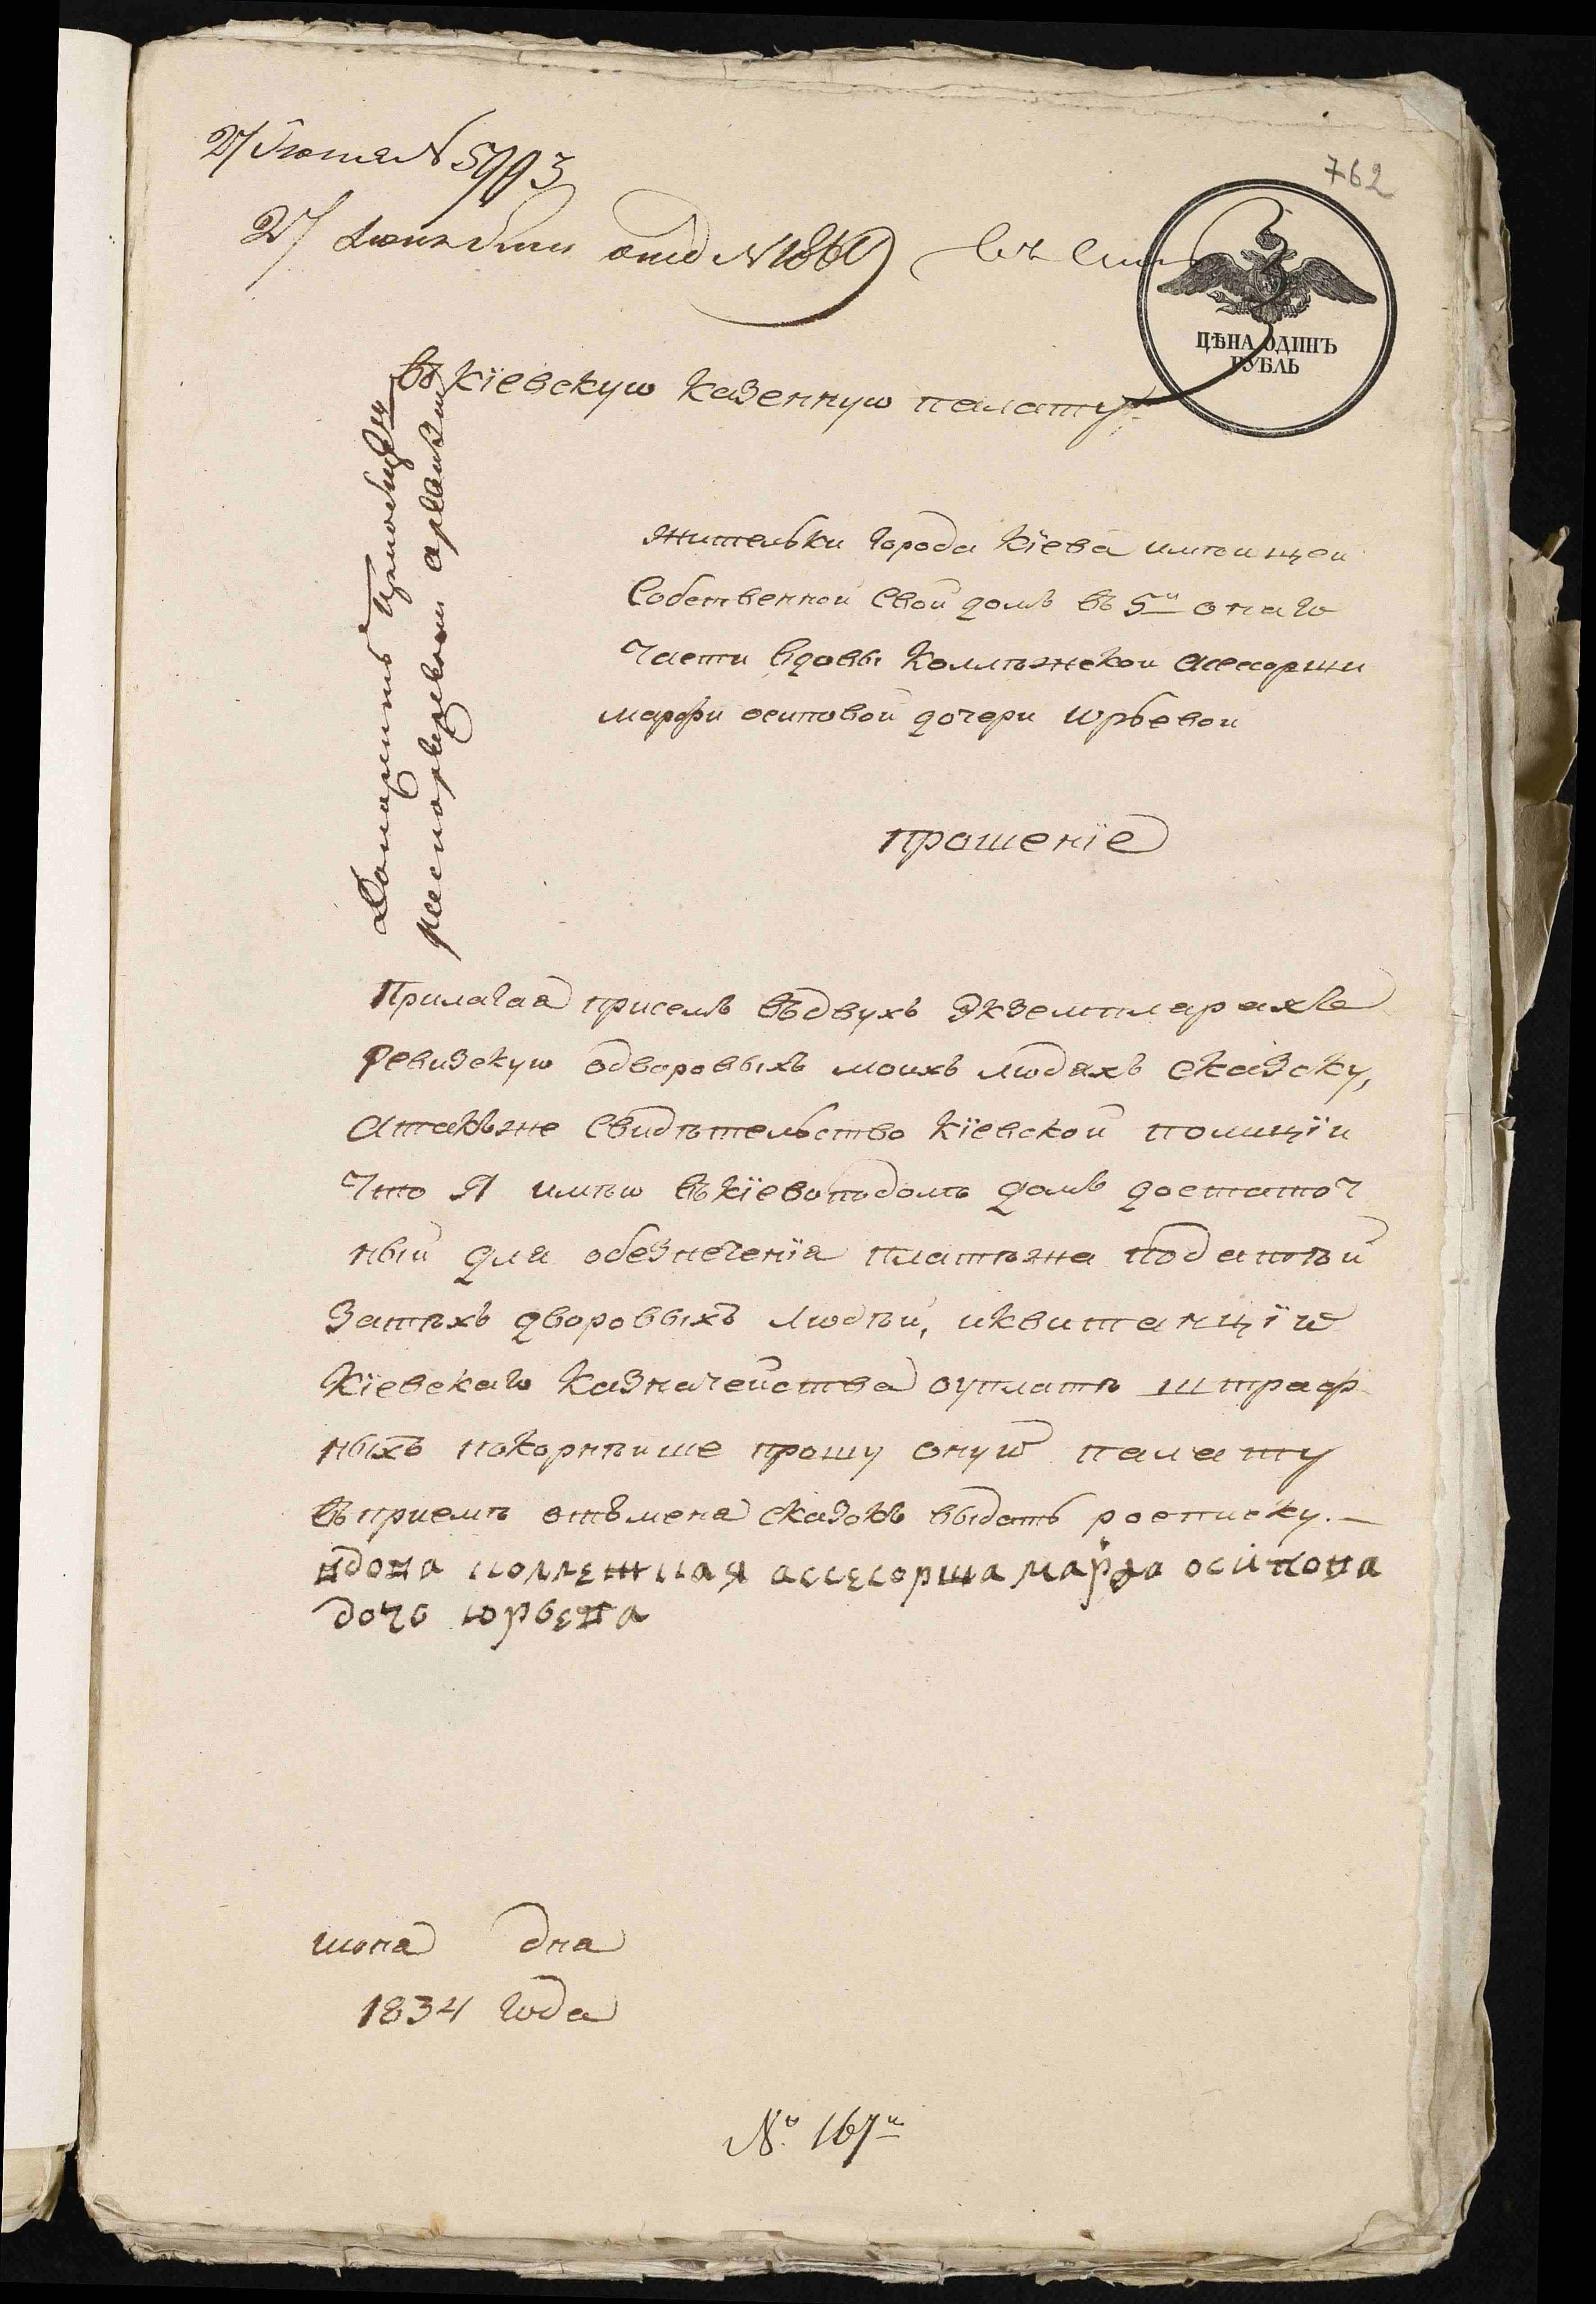 27 Июня N 5993
762
27 Июня отд N 1860
ЦѢНА ОДИНЪ
РУБЛЬ
Въ Кїевскую Казенную палату
Жительки города Кїева имѣющей
Собственной свой домъ въ 5й онаго
Части вдовы Коллѣжской Асессорши
марфи осиповой дочери Юрьевой
прошенїе
Прилагая присемъ въдвухъ Экземплярахъ
Ревизскую одворовыхъ моихъ людяхъ сказску,
Атакъже Свидѣтельство Кїевской полицїи
Что Я имѣю въКїевоподолѣ домъ достаточ
ный для обезпеченїя платѣжа податѣй
Затѣхъ дворовыхъ Людѣй, иквитанцїю
Кїевскаго Казначейства оуплатѣ штраф
ныхъ покорнѣише прошу оную палату
въприемѣ отъменя сказокъ выдать росписку.—
вдова коллежская ассесорша марфа осипова
дочь юрьева
июня дня
1834 года
№ 167й